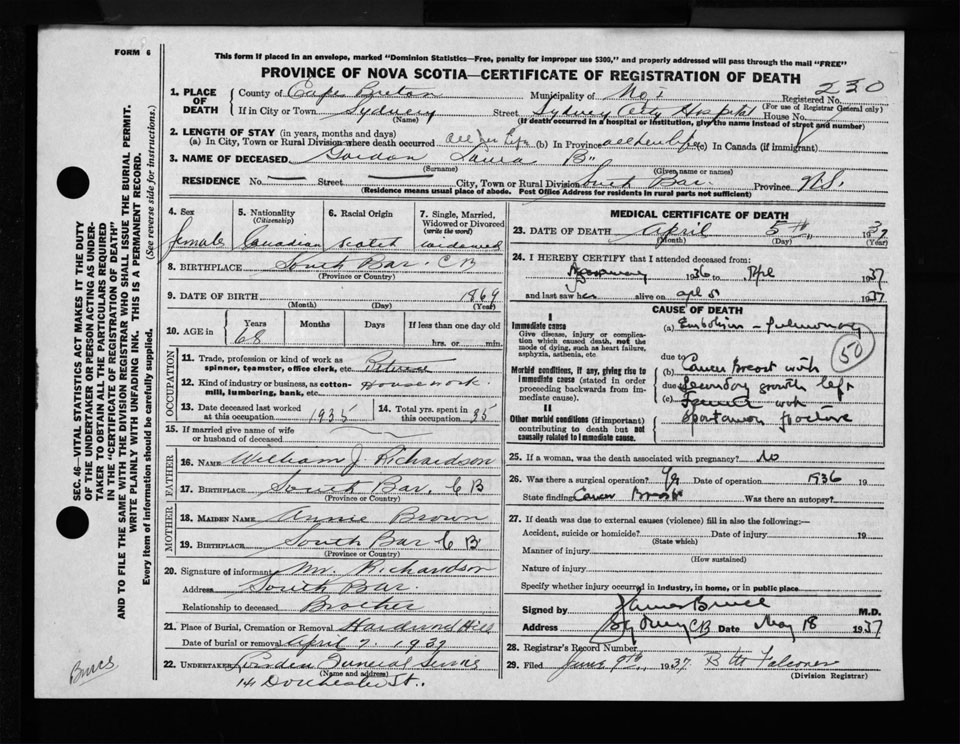 FORM 6
This form if placed in an envelope, marked "Dominion Statistics—Free, penalty for improper use $300," and properly addressed will pass through the mail "FREE"
PROVINCE OF NOVA SCOTIA—CERTIFICATE OF REGISTRATION OF DEATH
230
1. PLACE OF DEATH County of Cape Breton Municipality of No 1 Registered No.
(For use of Registrar General only)
If in City or Town Sydney Street Sydney City Hospital House No.
(Name) (If death occurred in a hospital or institution, give the name instead of street and number)
2. LENGTH OF STAY (in years, months and days)
(a) In City, Town or Rural Division where death occurred all her life (b) In Province all her life (c) In Canada (if immigrant)
3. NAME OF DECEASED Gordon Laura B
(Surname) (Given name or names)
RESIDENCE No. Street City, Town or Rural Division South Bar Province N.S.
(Residence means usual place of abode. Post Office Address for residents in rural parts not sufficient)
4. Sex 5. Nationality 6. Racial Origin 7. Single, Married, Widowed or Divorced
(Citizenship) (write the word)
female Canadian Scotch widowed
8. BIRTHPLACE South Bar. C B
(Province or Country)
9. DATE OF BIRTH 1869
(Month) (Day) (Year)
10. AGE in Years Months Days If less than one day old
68 hrs. or min.
OCCUPATION
11. Trade, profession or kind of work as spinner, teamster, office clerk, etc. Retired
12. Kind of industry or business, as cotton-mill, lumbering, bank, etc. Housework.
13. Date deceased last worked at this occupation 1935 14. Total yrs. spent in this occupation 35
15. If married give name of wife or husband of deceased
FATHER
16. NAME William J. Richardson
17. BIRTHPLACE South Bar, C B
(Province or Country)
MOTHER
18. MAIDEN NAME Annie Brown
19. BIRTHPLACE South Bar C B
(Province or Country)
20. Signature of informant Mr. Richardson
Address South Bar.
Relationship to deceased Brother
21. Place of Burial, Cremation or Removal Hardwood Hill
Date of burial or removal April 7. 1937
22. UNDERTAKER Funeral Service
(Name and address)
14 Dorchester St.
MEDICAL CERTIFICATE OF DEATH
23. DATE OF DEATH April 5th 1937
(Month) (Day) (Year)
24. I HEREBY CERTIFY that I attended deceased from:
1936 to Apl 1937
and last saw her alive on apl 5 1937
CAUSE OF DEATH
I
Immediate cause (a) Embolism - Pulmonary
Give disease, injury or complication which caused death, not the mode of dying, such as heart failure, asphyxia, asthenia, etc
50
due to
Morbid conditions, if any, giving rise to immediate cause (stated in order proceeding backwards from immediate cause). (b) Cancer Breast with
due to Secondary growth left
(c) Femur with
Spontaneous fracture
II
Other morbid conditions (if important) contributing to death but not causally related to immediate cause.
25. If a woman, was the death associated with pregnancy? No
26. Was there a surgical operation? Yes Date of operation 1936 19
State finding Cancer Breast Was there an autopsy?
27. If death was due to external causes (violence) fill in also the following:—
Accident, suicide or homicide? Date of injury 19
(State which)
Manner of injury
(How sustained)
Nature of injury
Specify whether injury occurred in industry, in home, or in public place
Signed by James Bruce M.D.
Address Sydney CB Date May 18 1937
28. Registrar's Record Number
29. Filed June 9th 1937. Falconer
(Division Registrar)
SEC. 46—VITAL STATISTICS ACT MAKES IT THE DUTY
OF THE UNDERTAKER OR PERSON ACTING AS UNDER-
TAKER TO OBTAIN ALL THE PARTICULARS REQUIRED
IN THE "CERTIFICATE OF REGISTRATION OF DEATH"
AND TO FILE THE SAME WITH THE DIVISION REGISTRAR WHO SHALL ISSUE THE BURIAL PERMIT.
WRITE PLAINLY WITH UNFADING INK. THIS IS A PERMANENT RECORD.
Every item of information should be carefully supplied. (See reverse side for instructions.)